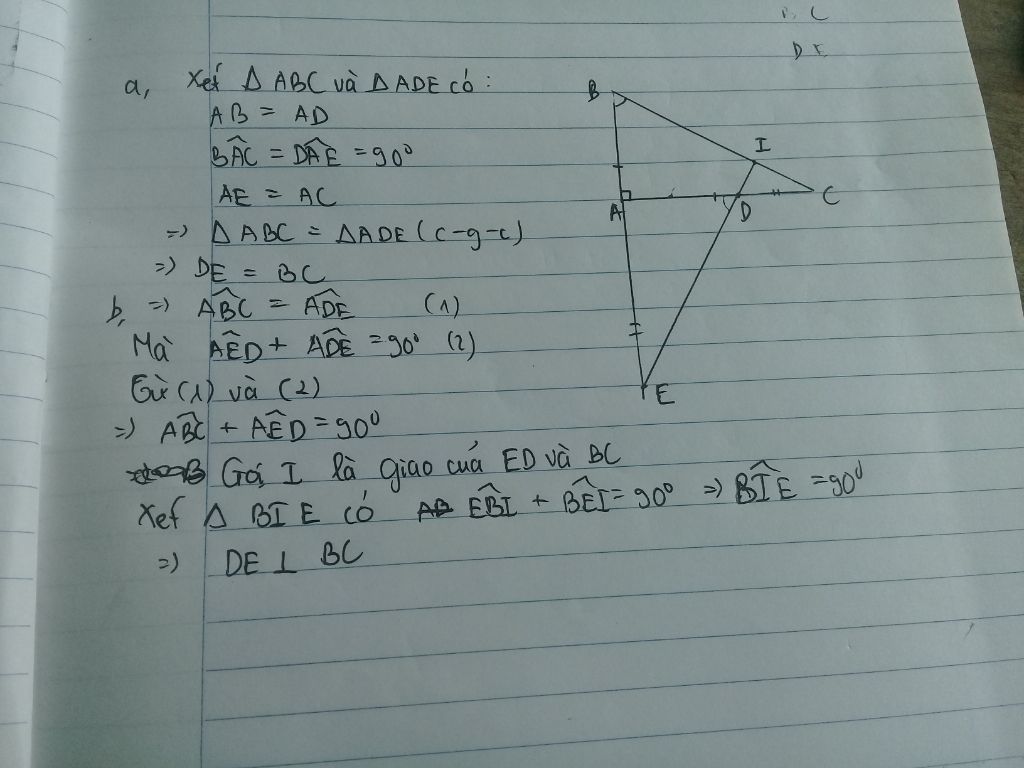 B, C
D E
a, Xét Δ ABC và Δ ADE có:
AB = AD
BÂC = DÂE = 90⁰
AE = AC
=> Δ ABC = Δ ADE (c-g-c)
=> DE = BC
b, => AB̂C = AD̂E (1)
Mà AÊD + AD̂E = 90⁰ (2)
Từ (1) và (2)
=> AB̂C + AÊD = 90⁰
Gọi I là giao của ED và BC
Xét Δ BIE có EB̂I + BÊI = 90⁰ => BÎE = 90⁰
=> DE ⊥ BC
B
I
A
D
C
E